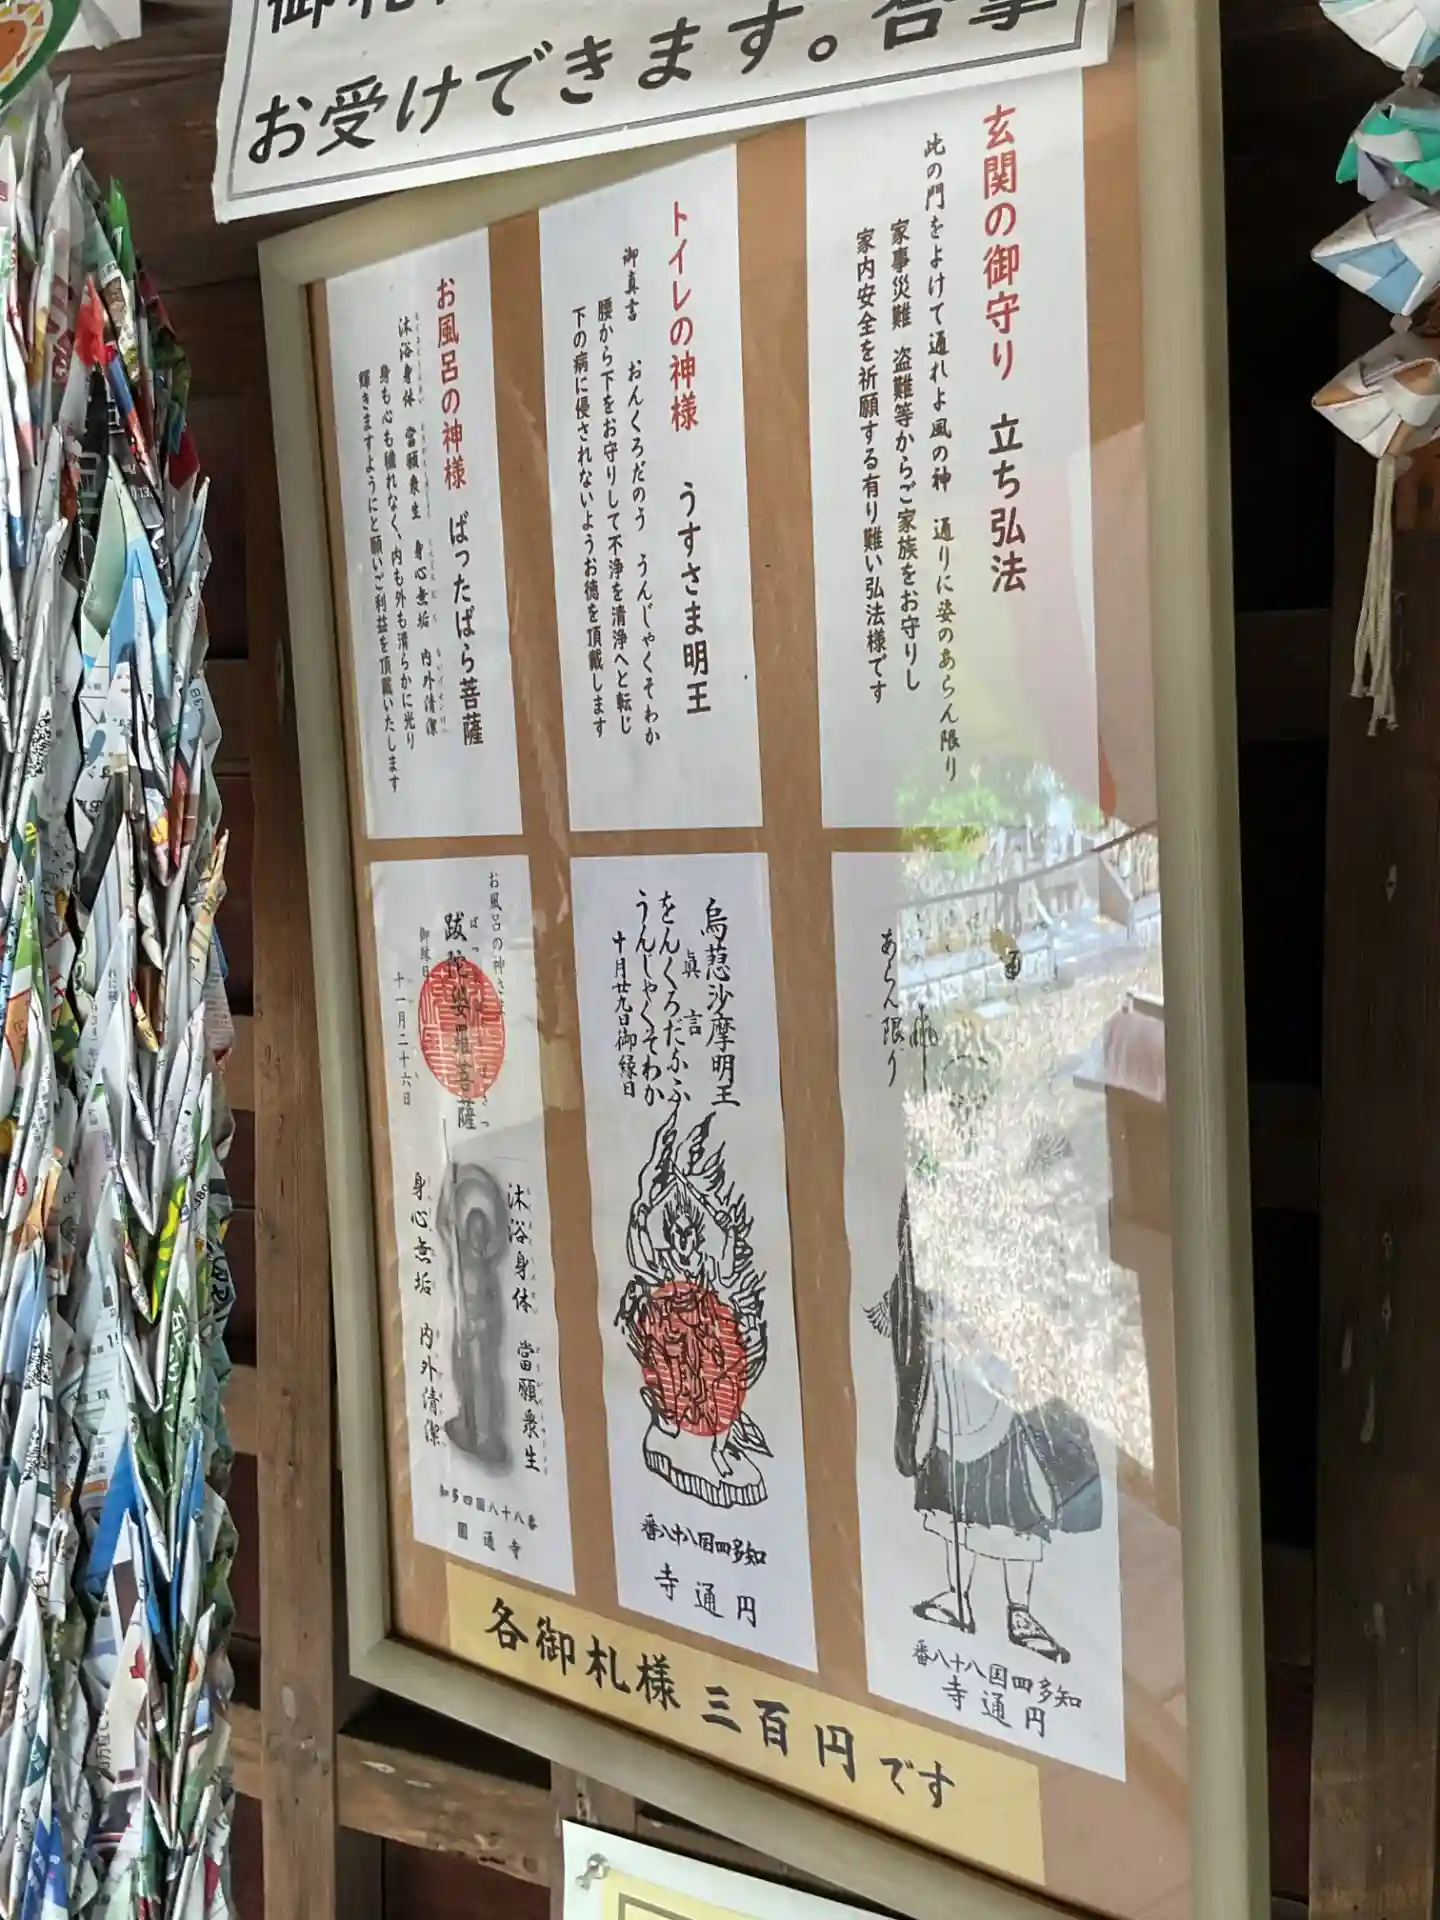 お受けできます。合掌
玄関の御守り 立ち弘法
此の門をよけて通れよ風の神 通りに姿のあらん限り
家事災難 盗難等からご家族をお守りし
家内安全を祈願する有り難い弘法様です
トイレの神様 うすさま明王
御真言 おんくろだのう うんじゃくそわか
腰から下をお守りして不浄を清浄へと転じ
下の病に侵されないようお徳を頂戴します
お風呂の神様 ばったばら菩薩
沐浴身体 當願衆生 身心無垢 内外清潔
身も心も穢れなく、内も外も清らかに光り
輝きますようにと願いご利益を頂戴いたします
通
あらん限り
知多四国八十八番
円通寺
烏蒭沙摩明王
眞言
をんくろだなふ
うんじゃくそわか
十月廿九日御縁日
知多四国八十八番
円通寺
お風呂の神さま
跋陀婆羅菩薩
御縁日
十一月二十六日
沐浴身体 當願衆生
身心無垢 内外清潔
知多四国八十八番
圓通寺
各御札様 三百円です